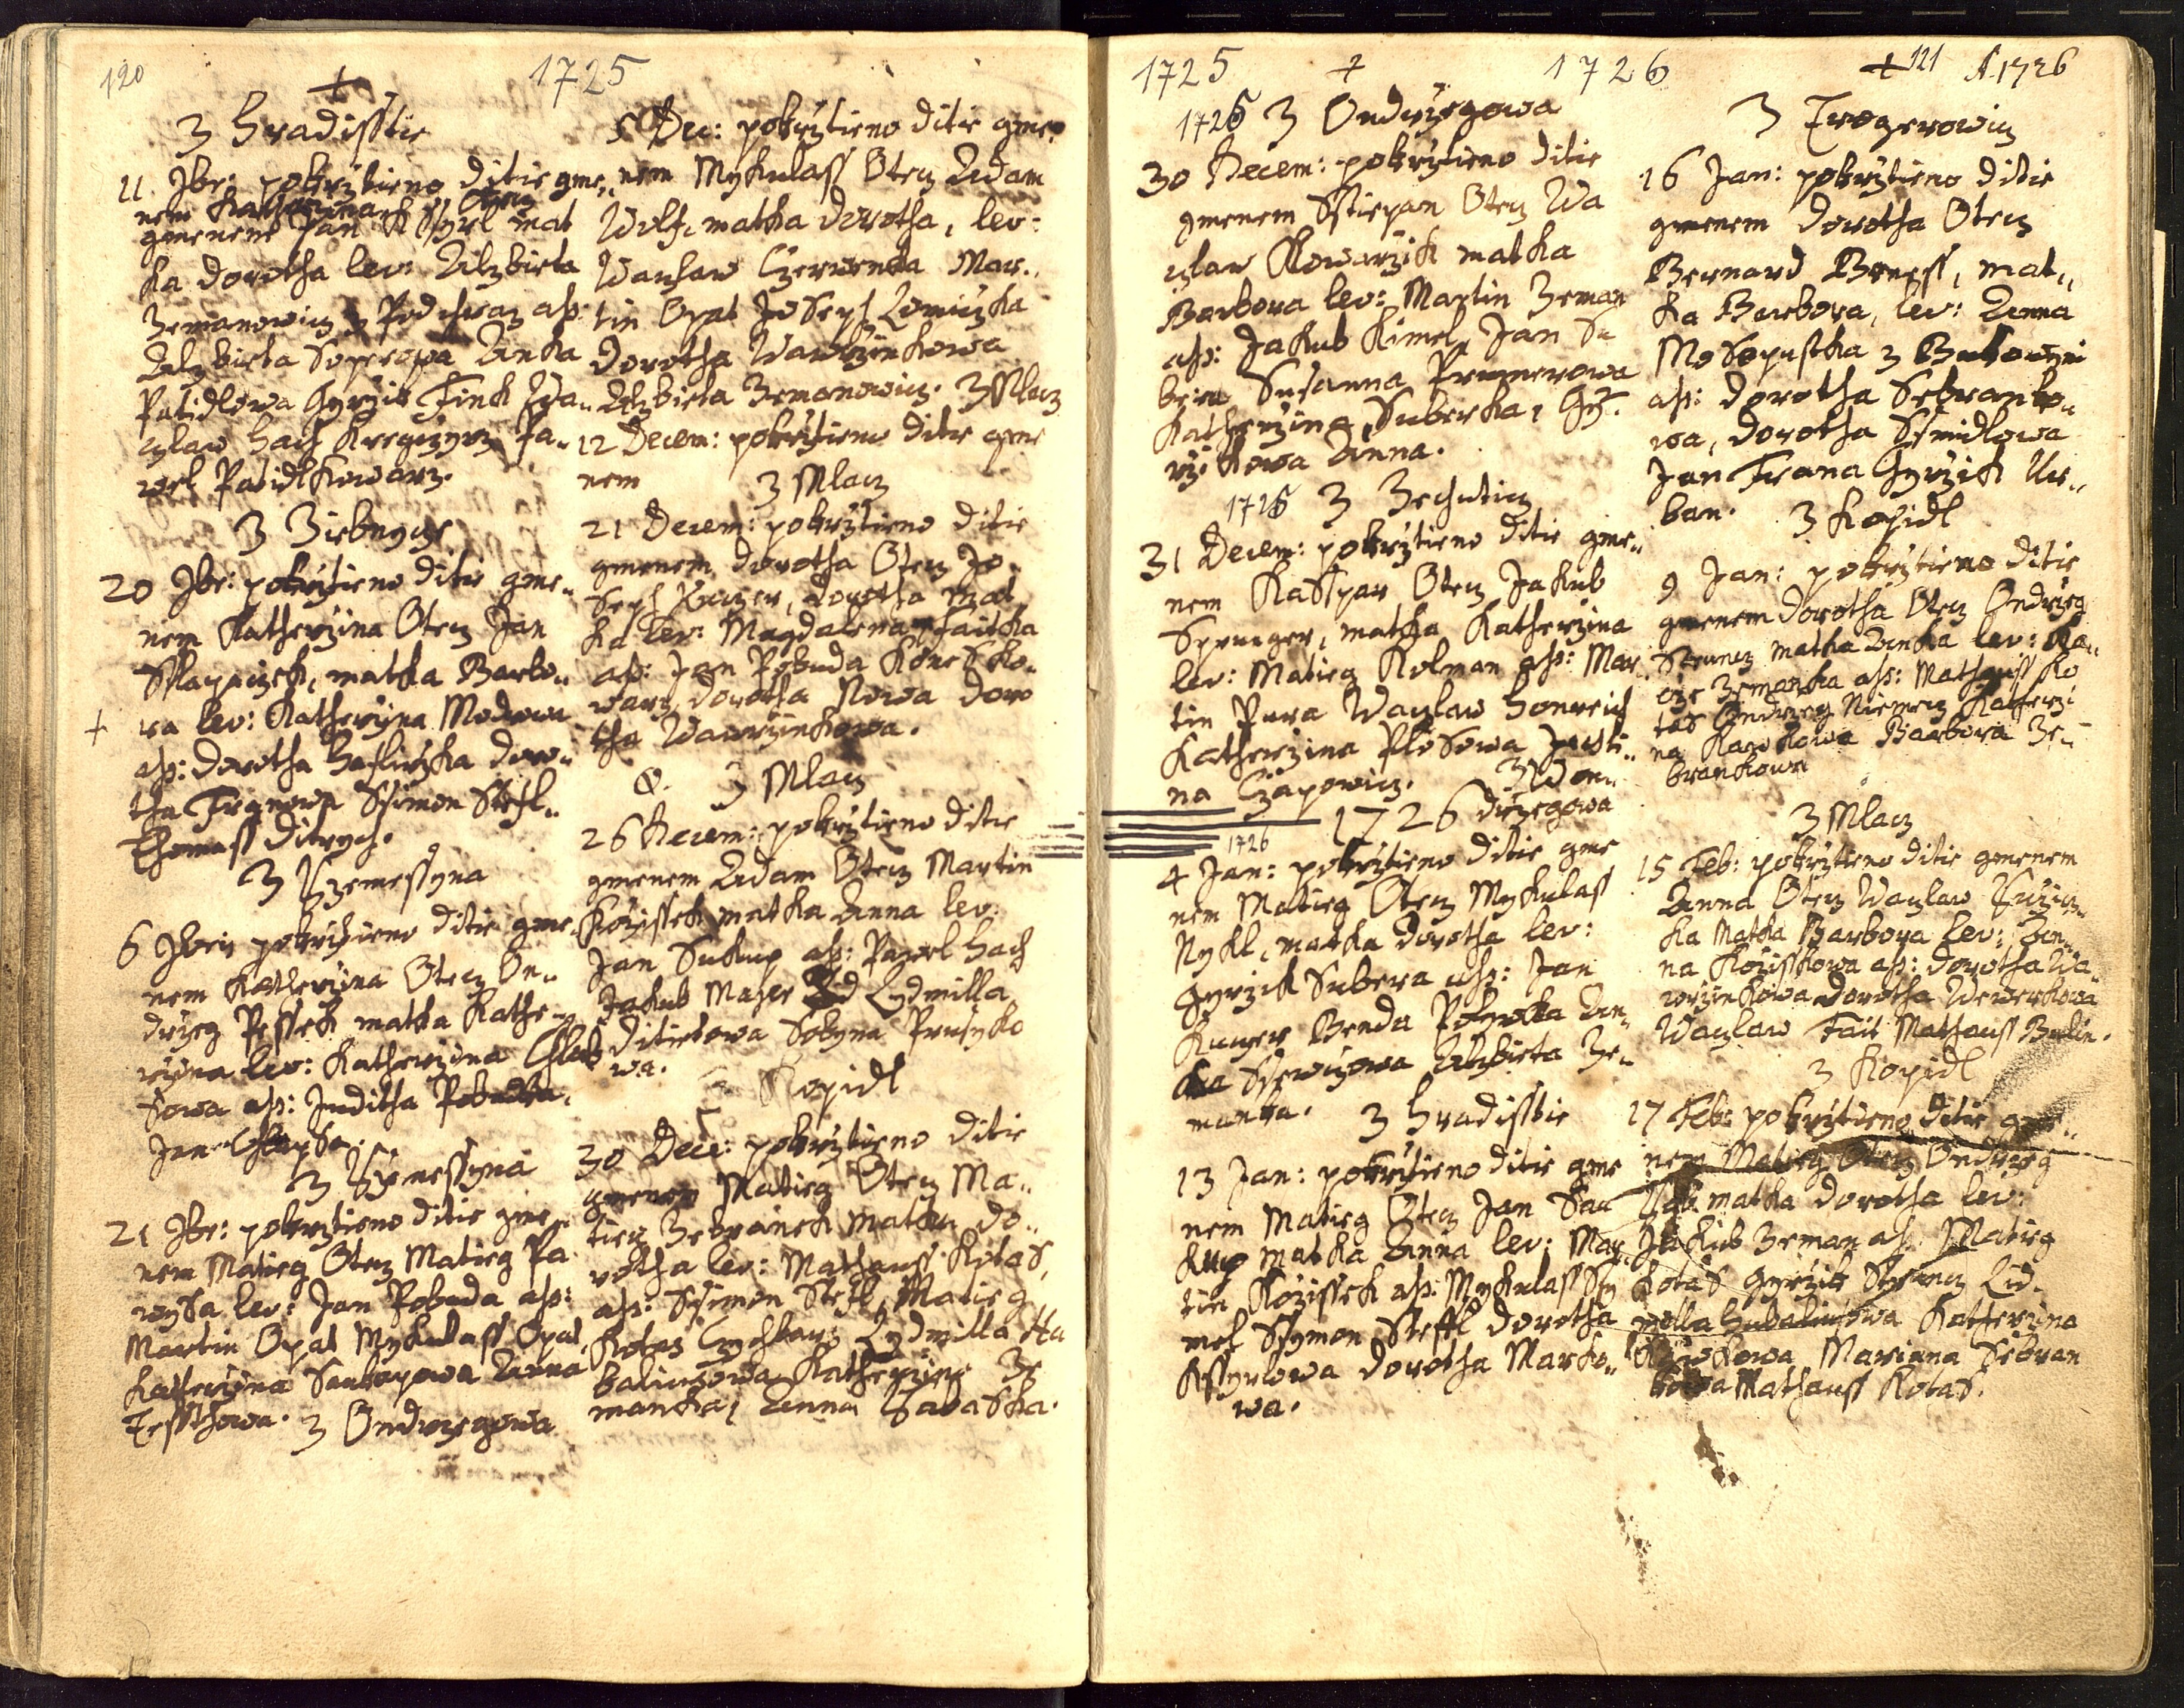 120
+
1725
z Hradisstie
11 9br: pokrztieno ditie gme„
nem Katherzina Otecz
gmenem Jan Kssyrl mat
ka dorotha lev: Alzbieta
Zemanowicz z Podchraz ass:
Alzbieta Anka
Patidlowa Gyrzik Finck Wa„
czlaw Hach Kregczyrz Pa„
wel Patidl Kowarz.
z Ziebnycze
20 9br: pokrztieno ditie gme„
nem Katherzina Otecz Jan
Sklapiczek, matka Barbo„
+ ra lev: Katherzina Modrowa
ass: dorotha Haslirzka doro„
tha Franowa Ssimon Steffl„
Thomass ditrych.
z Rzemessyna
6 9bris pokrztieno ditie gme„
nem Katherzina Otecz On„
drzeg Pessek matka Kathe„
rzina lev: Katherzina
sowa ass: Juditha Pobudka,
Jan
z Rzemessyna
21 9br: pokrztieno ditie gme„
nem Matieg Otecz Matieg Pa
wysa lev: Jan Pobuda ass:
Martin Opat Mykulass Opat,
Katherzina Sautopowa Anna
Fessthowa. z Ondrzegowa
5 Dec: pokrztieno ditie gme„
nem Mykulass Otecz Adam
Wolf, matka dorotha, lev:
Wanslaw Czerwenka Mar„
tin Opat Joseph Lomiczka
dorotha Wawrzinkowa
Alzbieta Zemanowicz. z Mlacz
12 Decem: pokrztieno ditie gme
nem
z Mlacz
21 Decem: pokrztieno ditie
gmenem dorotha Otecz Jo„
seph dorotha mat
ka lev: Magdalena Faitka
ass: Jan Pobuda Kones Ko„
warz dorotha Nowa doro
tha Wawrzinkowa.
O. z Mlacz
26 Decem: pokrztieno ditie
gmenem Adam Otecz Martin
Kozissek matka Anna lev:
Jan Sukup ass: Pawel Hach
Jakub Majer Zid Lydmilla
ditietowa Sobyna Prusyko
wa.
z Kopidl
30 Dece: pokrztieno ditie
gmenem Matieg Otecz Ma„
tieg Zebranek matka do„
rotha lev: Mathauss Kotas,
ass: Ssimon Steffl, Matieg
Kotas Lydmilla Ha
baliczowa Katherzina Ze
manka, Anna Sadaska.
1725
+
1726
+ 121 A 1726
1725 z Ondrzegowa
30 Decem: pokrztieno ditie
gmenem Sstiepan Otecz Wa
czlaw Kowarzik matka
Barbora lev: Martin Zeman
ass: Jakub Kimel, Jan Su
bera Susanna Primerowa
Katherzina Suberka, Gÿ„
rzikowa Anna.
1725 z Zechuticz
31 Decem: pokrztieno ditie gme„
nem Kasspar Otecz Jakub
Sprniger, matka Katherzina
lev: Matieg Kolman ass: Mar
tin Pura Waczlaw Honreich
Katherzina Plosowa Justi„
na Czapowicz.
z Won„
1726 drzegowa
1726
4 Jan: pokrztieno ditie gme
nem Matieg Otecz Mykulass
Nykl, matka dorotha lev:
Gyrzik Subera ass: Jan
Benda An„
ka Ssewczowa Alzbieta Ze„
manka. z Hradisstie
13 Jan: pokrztieno ditie gme
nem Matieg Otecz Jan Sau
kup matka Anna lev: Mar
tin Kozissek ass: Mykulass Sy
mek Ssymon Steffl dorotha
Kssyrlowa dorotha Marko„
wa.
z Tregerowicz
16 Jan: pokrztieno ditie
gmenem dorotha Otecz
Bernard Beness, mat„
ka Barbora, lev: Anna
Mosopustka z Bukowyni
ass: dorotha Sebranko„
wa, dorotha Ssmidlowa
Jan Frana Gyrzik Ur„
ban. z Kopidl
9 Jan: pokrztieno ditie
gmenem dorotha Otecz Ondrzeg
Struncz matka Anka lev: Ka„
Zemanka ass: Mathauss Ko
tas Ondrzeg Niemecz Katherzi
na Kawkowa Barbora Ze„
brankowa
z Mlacz
15 Feb: pokrztieno ditie gmenem
Anna Otecz Waczlaw
ka Matka Barbora lev: An„
na Kozisskowa ass: dorotha Wa
wrzinkowa dorotha Wewerkowa
Waczlaw Fait Mathauss Bulin.
z Kopidl
17 Feb: pokrztieno ditie gme„
nem Matieg Otecz Ondrzeg
matka dorotha lev:
Jakub Zeman ass: Matieg
Kotas Gyrzik Struncz Lid„
milla Hubaliczowa Katherzina
Kawkowa Marianna Sebran
kowa Mathauss Kotas.